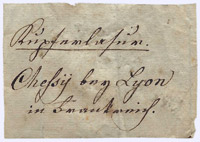 Kupferlasur.
Chessij bey Lyon
in Frankreich.